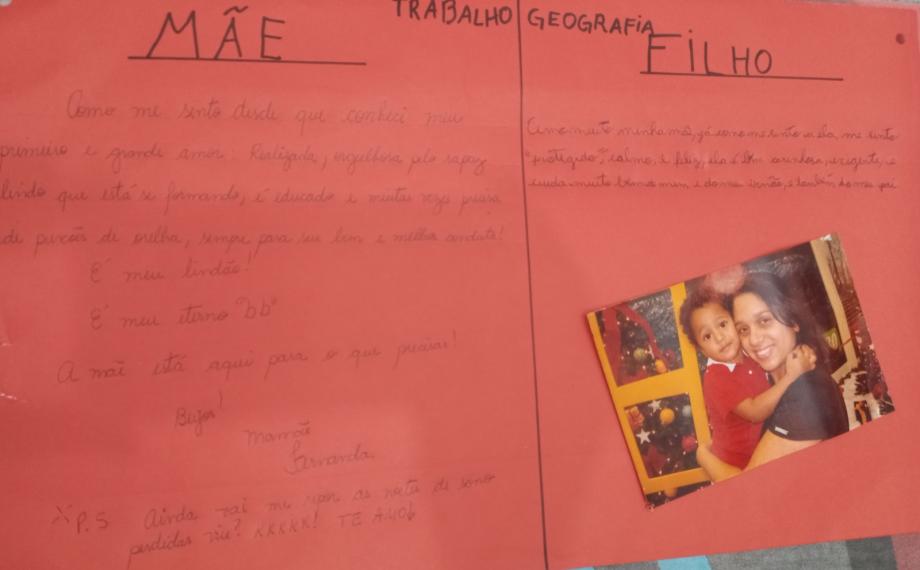 TRABALHO GEOGRAFIA
MÃE
Como me sinto desde que conheci meu
primeiro e grande amor: Realizada, orgulhosa pelo rapaz
lindo que está se formando, é educado e muitas vezes precisa
de puxões de orelha, sempre para seu bem e melhor conduta!
É meu lindão!
É meu eterno "bb"
A mãe está aqui para o que precisar!
Beijos!
Mamãe
Fernanda
P.S Ainda vai me pagar as noites de sono
perdidas viu? KKKKK! TE AMO!
FILHO
Amo muito minha mãe, já como me sinto a ela, me sinto
"protegido", calmo, e feliz, ela é bem carinhosa, exigente, e
cuida muito bem de mim, e do meu irmão, e também do meu pai